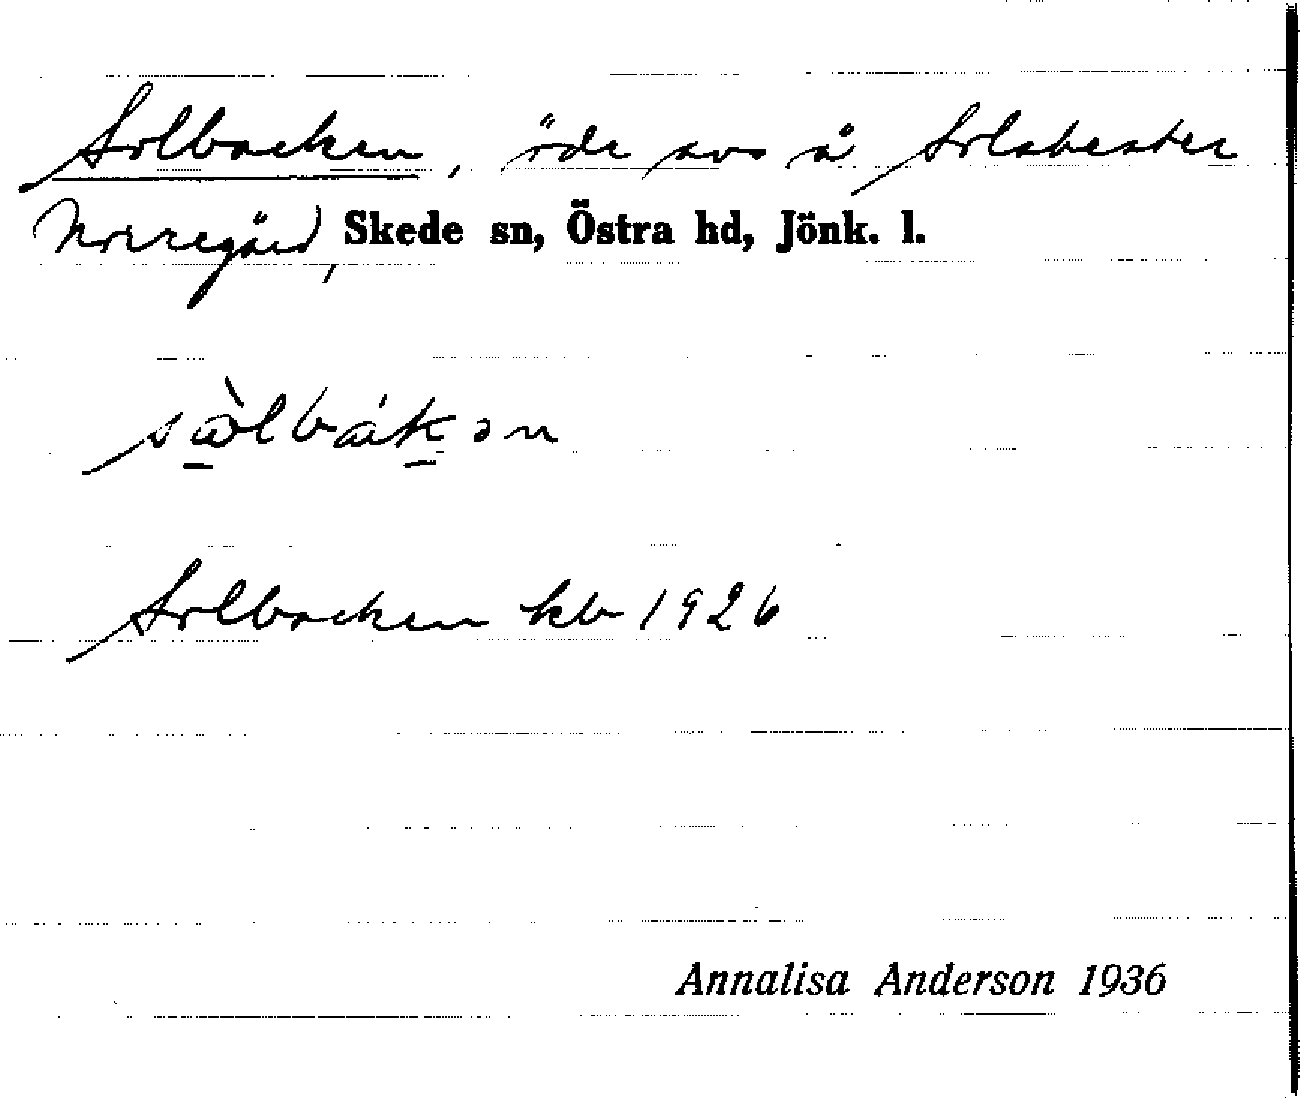 Solbacken, öde avs å Solabester
Norregård, Skede sn, Östra hd, Jönk. l.
Solbacken kb 1926
Annalisa Anderson 1936